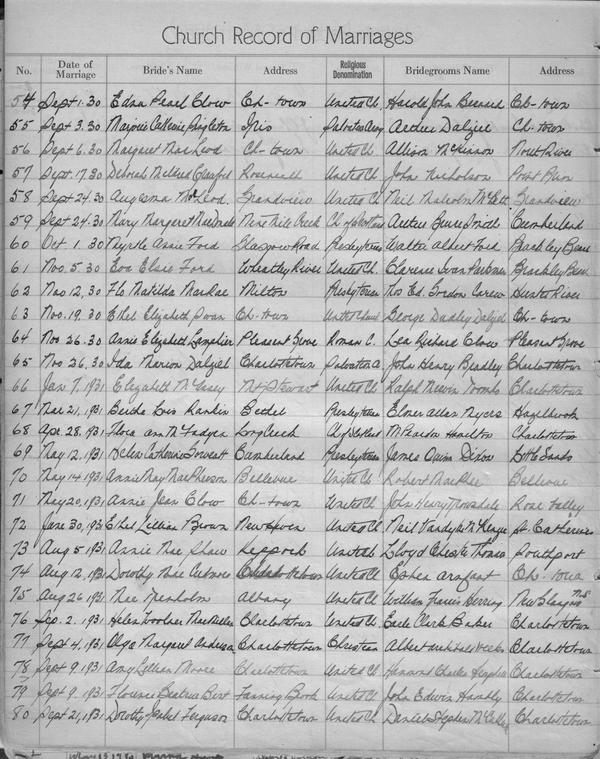 Church Record of Marriages
No. Date of Marriage Bride's Name Address Religious Denomination Bridegrooms Name Address
54 Sept 1.30 Edna Pearl Clow Ch-town United Ch. Harold John Bernard Ch-town
55 Sept 3.30 Marjorie Catherine Iris Salvation Army Arthur Dalziel Ch-town
56 Sept 6.30 Margaret MacLeod Ch-town United Ch. Allison McKinnon North River
57 Sept. 17.30 Deborah Roseneath United Ch John Nicholson
58 Sept 24.30 McLeod. Grandview United Ch Neil Malcolm Grandview
59 Sept 24.30 Mary Margaret MacDonald Nine Mile Creek Arthur Bruce Smith Cumberland
60 Oct 1.30 Myrtle Annie Ford Glasgow Road Presbyterian Walter Albert Ford Brackley
61 Nov. 5.30 Eva Elsie Ford Wheatley River United Ch. Clarence Ivan Brackley
62 Nov 12,30 Flo Matilda MacRae Milton Presbyterian Thos Ed. Gordon Carew Hunter River
63 Nov. 19.30 Ethel Elizabeth Swan Ch-town United Church George Dudley Dalziel Ch-town
64 Nov 26.30 Annie Elizabeth Pleasant Grove Roman C. Leo Richard Clow Pleasant Grove
65 Nov 26.30 Ida Marion Dalziel Charlottetown Salvation A John Henry Bradley Charlottetown
66 Jan 7, 1931 Elizabeth Mt Stewart United Ch. Ralph Toombs Charlottetown
67 Mar 21, 1931 Bertha Lois Rankin Bethel Presbyterian Elmer Allan Myers Hazelbrook
68 Apr. 28, 1931 Flora Ann McFadyen Long Creek Hamilton Charlottetown
69 May 12, 1931 Helen Catherine Cumberland Presbyterian James Dixon
70 May 14, 1931 Annie May MacPherson Bellevue United Ch Robert MacPhee Bellevue
71 May 20, 1931 Annie Jean Clow Ch-town United Ch John Henry Trowsdale Rose Valley
72 June 30, 1931 Ethel Lillian Brown New Haven United Ch. Neil St. Catherines
73 Aug 5, 1931 Annie Mae Shaw Keppoch United Ch Lloyd Chester Thomas Southport
74 Aug 12, 1931 Dorothy Charlottetown United Ch Arafat Ch-town
75 Aug 26, 1931 Albany United Ch. William Francis Herring New Glasgow N.S.
76 Sep. 2, 1931 Helen Woolner MacMillan Charlottetown United Ch. Earle Clark Baker Charlottetown
77 Sept 4, 1931 Olga Margaret Anderson Charlottetown Christian Albert Weeks Charlottetown
78 Sept 9, 1931 Amy Lillian Moore Charlottetown United Ch Charles Charlottetown
79 Sept 9, 1931 Florence Beatrice Fanning United Ch. John Edwin Charlottetown
80 Sept 21, 1931 Dorothy Isabel Ferguson Charlottetown United Ch. Daniel Stephen Charlottetown